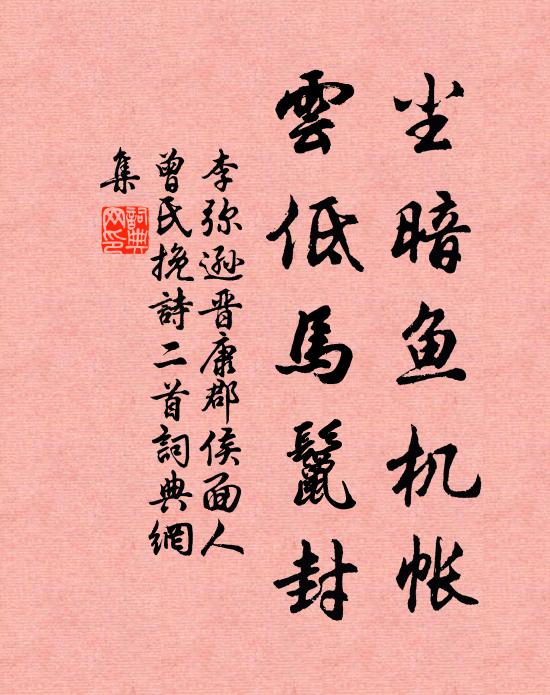 尘暗鱼机帐
雲低馬鬣封
李弥遜晋康郡侯面人
曾氏挽詩二首詞典網
集
詞典
网印